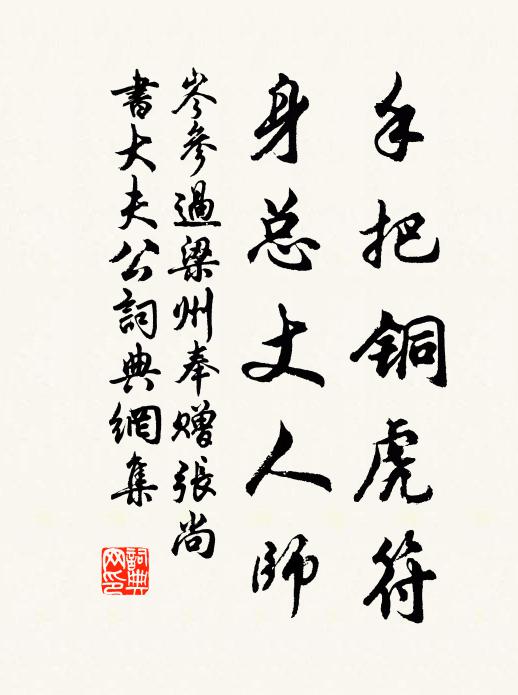 手把铜虎符
身总丈人师
岑参過梁州奉赠張尚
書大夫公詞典網集
詞典网印